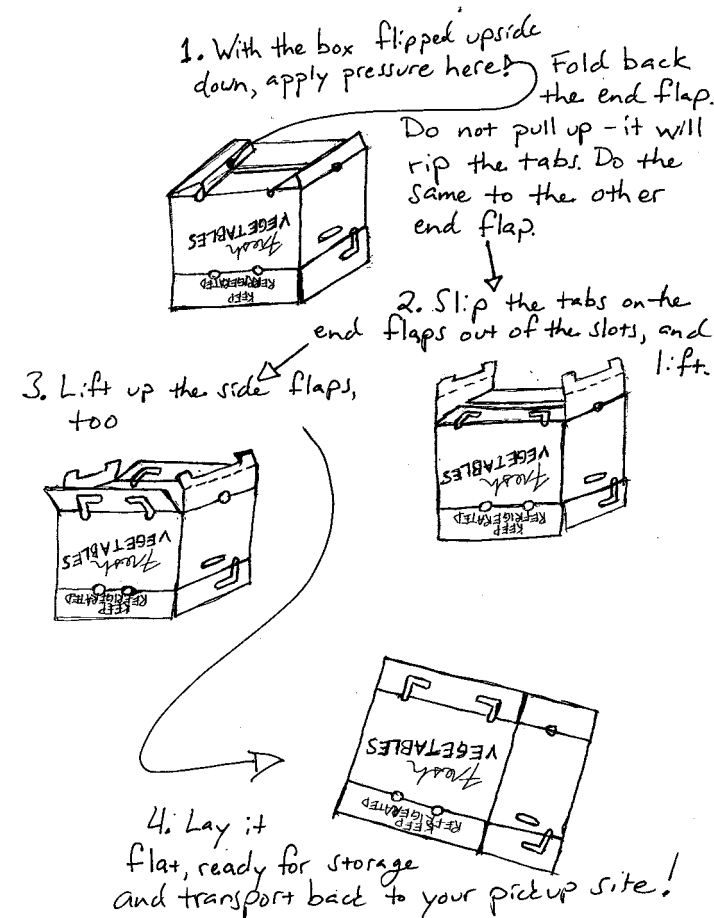 1. With the box flipped upside
down, apply pressure here!
Fold back
the end flap.
Do not pull up – it will
rip the tabs. Do the
same to the other
end flap.
fresh
VEGETABLES
KEEP
REFRIGERATED
2. Slip the tabs on the
end flaps out of the slots, and
lift.
fresh
VEGETABLES
KEEP
REFRIGERATED
3. Lift up the side flaps,
too
fresh
VEGETABLES
KEEP
REFRIGERATED
fresh
VEGETABLES
KEEP
REFRIGERATED
4. Lay it
flat, ready for storage
and transport back to your pickup site!